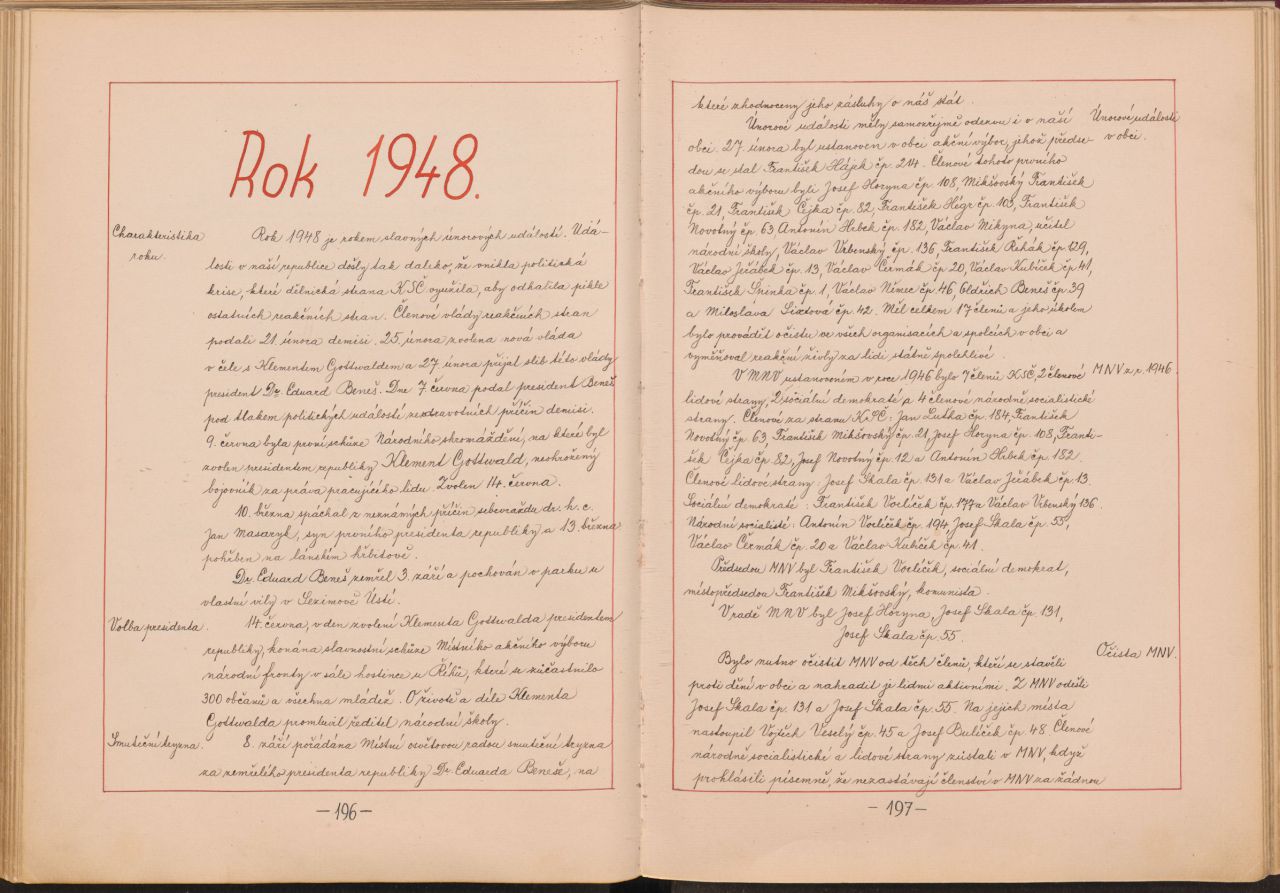 Rok 1948.
Charakteristika
roku.
Rok 1948 je rokem slavných únorových událostí. Udá-
losti v naší republice došly tak daleko, že vnikla politická
krise, které dělnická strana KSČ využila, aby odhalila pikle
ostatních reakčních stran. Členové vlády reakčních stran
podali 21. února demisi. 25. února zvolena nová vláda
v čele s Klementem Gottwaldem a 27 února přijat slib této vlády
president Dr. Eduard Beneš. Dne 7. června podal president Beneš
pod tlakem politických událostí ze zdravotních příčin demisi.
9. června byla první schůze Národního shromáždění, na které byl
zvolen presidentem republiky Klement Gottwald, neohrožený
bojovník za práva pracujícího lidu. Zvolen 14. června.
10. března spáchal z neznámých příčin sebevraždu dr. h. c.
Jan Masaryk, syn prvního presidenta republiky a 13. března
pohřben na lánském hřbitově.
Dr. Eduard Beneš zemřel 3. září a pochován v parku u
vlastní vily v Sezimově Ústí.
Volba presidenta.
14. června, v den zvolení Klementa Gottwalda presidentem
republiky, konána slavnostní schůze Místního akčního výboru
národní fronty v sále hostince u Říhů, které se zúčastnilo
300 občanů a všechna mládež. O životě a díle Klementa
Gottwalda promluvil ředitel národní školy.
Smuteční tryzna.
8. září pořádána Místní osvětovou radou smuteční tryzna
za zemřelého presidenta republiky Dr. Eduarda Beneše, na
- 196 -
které zhodnoceny jeho zásluhy o náš stát.
Únorové události
v obci.
Únorové události měly samozřejmě odezvu i v naší
obci. 27. února byl ustanoven v obci akční výbor, jehož předse-
dou se stal František Hájek čp. 214. Členové tohoto prvního
akčního výboru byli Josef Horyna čp. 108, Mikšovský František
čp. 21, František Čejka čp. 82, František Hégr čp. 103, František
Novotný čp 63 Antonín Hibek čp. 182, Václav Mikyna, učitel
národní školy, Václav Vrbenský čp. 136, František Řihák čp 129,
Václav Jeřábek čp. 13, Václav Čermák čp 20, Václav Kubíček čp 41,
František Šninka čp. 1, Václav Němec čp. 46, Oldřich Beneš čp 39
a Miloslava Sixtová čp. 42. Měl celkem 17 členů a jeho úkolem
bylo provádět očistu ve všech organisacích a spolcích v obci a
vyměňoval reakční živly za lidi státně spolehlivé.
MNV z r. 1946.
V MNV ustanoveném v roce 1946 bylo 7 členů KSČ, 2 členové
lidové strany, 2 sociální demokraté a 4 členové národně socialistické
strany. Členové za stranu KSČ: Jan Lutka čp. 184, František
Novotný čp. 63, František Mikšovský čp. 21, Josef Horyna čp. 108, Franti-
šek Čejka čp. 82, Josef Novotný čp. 12 a Antonín Hibek čp. 182.
Členové lidové strany: Josef Skala čp. 131 a Václav Jeřábek čp. 13.
Sociální demokraté: František Vorlíček čp. 177 a Václav Vrbenský 136.
Národní socialisté: Antonín Vorlíček čp. 194, Josef Skala čp. 55,
Václav Čermák čp. 20 a Václav Kubíček čp. 41.
Předsedou MNV byl František Vorlíček, sociální demokrat,
místopředsedou František Mikšovský, komunista.
V radě MNV byl Josef Horyna, Josef Skala čp. 131,
Josef Skala čp. 55.
Očista MNV.
Bylo nutno očistit MNV od těch členů, kteří se stavěli
proti dění v obci a nahradit je lidmi aktivními. Z MNV odešli
Josef Skala čp. 131 a Josef Skala čp. 55. Na jejich místa
nastoupil Vojtěch Veselý čp. 45 a Josef Bulíček čp. 48 Členové
národně socialistické a lidové strany zůstali v MNV, když
prohlásili písemně, že nezastávají členství v MNV za žádnou
- 197 -